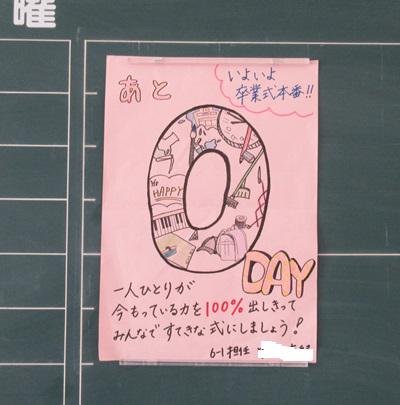 曜
いよいよ
卒業式本番!!
あと
0
HAPPY
DAY
一人ひとりが
今もっている力を100%出しきって
みんなですてきな式にしましょう!
6-1担任